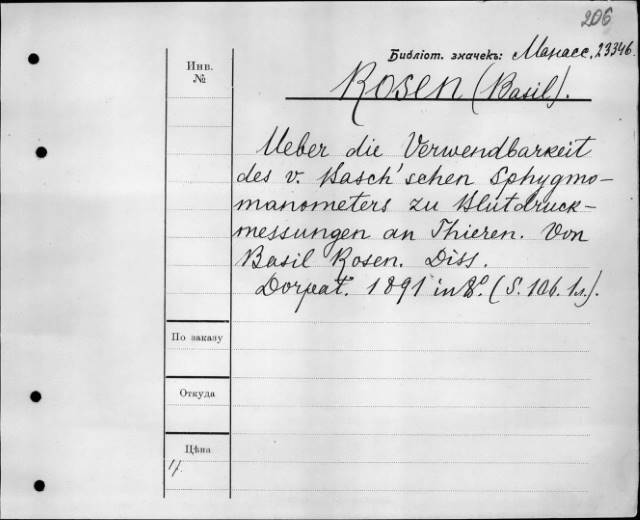 206
Библіот. значекъ: Манасс. 23346.
Инв.
№
Rosen (Basil).
Ueber die Verwendbarkeit
des v. Basch'schen Sphygmo-
manometers zu Blutdruck-
messungen an Thieren. Von
Basil Rosen. Diss.
Dorpat. 1891 in 8º. (S. 106. 1 л.).
По заказу
Откуда
Цѣна